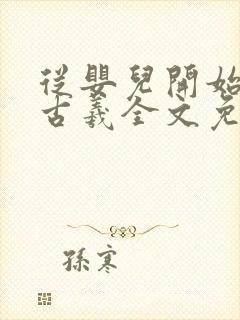 從嬰兒開始
古羲全文免
孫寒